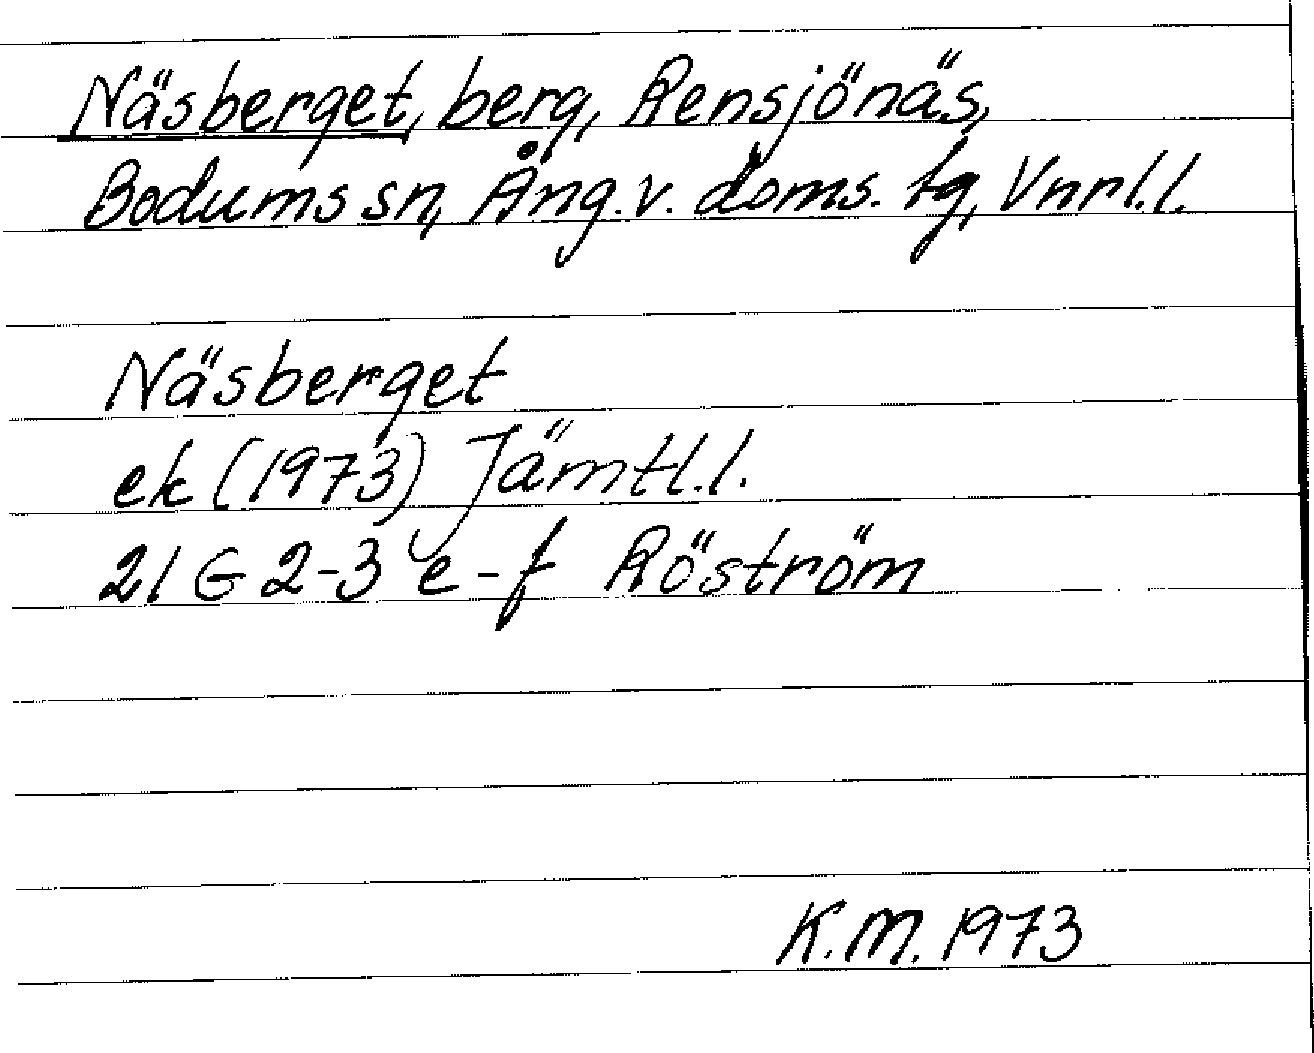 Näsberget, berg, Rensjönäs,
Bodums sn, Ång. v. doms. tg, Vnrl.l.
Näsberget
ek (1973) Jämtl.l.
21 G 2-3 e-f Röström
K.M. 1973